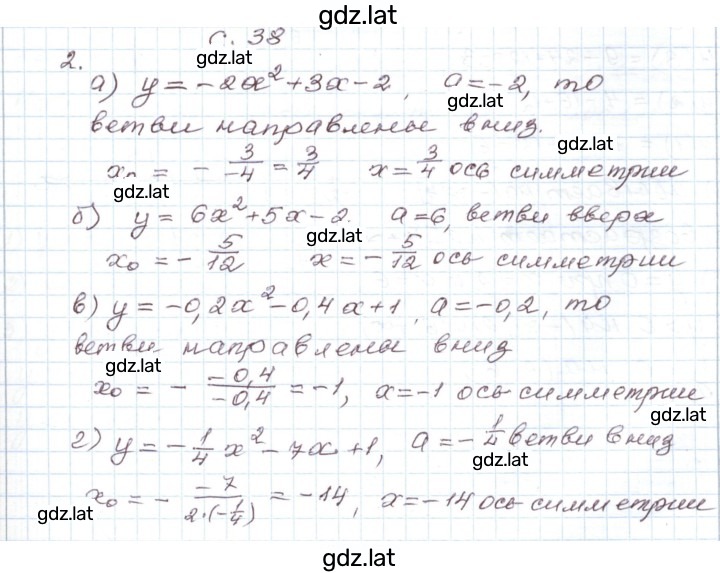 gdz.lat
с. 38
2.
gdz.lat
а) y = -2x² + 3x - 2, a = -2, то
gdz.lat
ветви направлены вниз.
gdz.lat
x₀ = - 3/-4 = 3/4 x = 3/4 ось симметрии
gdz.lat
б) y = 6x² + 5x - 2. a = 6, ветви вверх
gdz.lat
x₀ = - 5/12 x = - 5/12 ось симметрии
в) y = -0,2x² - 0,4x + 1, a = -0,2, то
gdz.lat
ветви направлены вниз
gdz.lat
x₀ = - -0,4/-0,4 = -1, x = -1 ось симметрии
gdz.lat
г) y = - 1/4 x² - 7x + 1, a = - 1/4 ветви вниз
gdz.lat
x₀ = - -7/2·(-1/4) = -14, x = -14 ось симметрии
gdz.lat
gdz.lat